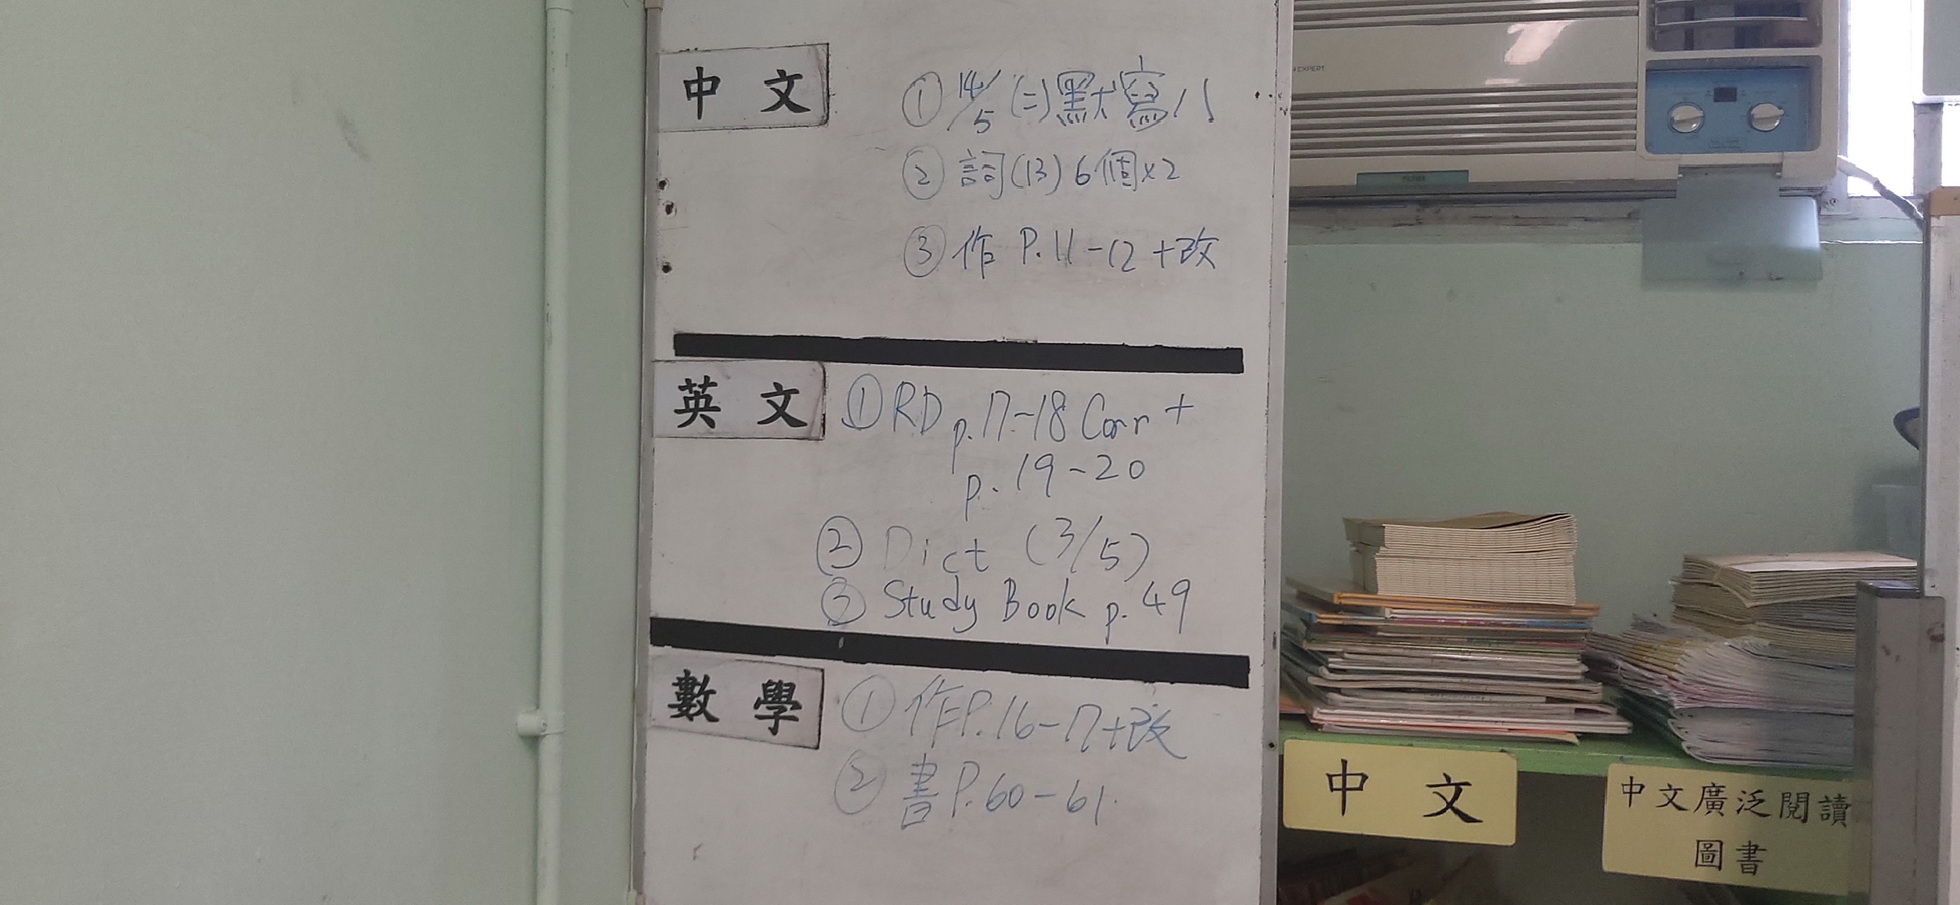 中文
① 14/5 (二) 默寫八
② 詞(13) 6個x2
③ 作 P.11-12 +改
英文
① RD p.17-18 Corr +
p.19-20
② Dict (3/5)
③ Study Book p.49
數學
① 作P.16-17+改
② 書P.60-61
EXPERT
中文
中文廣泛閱讀
圖書